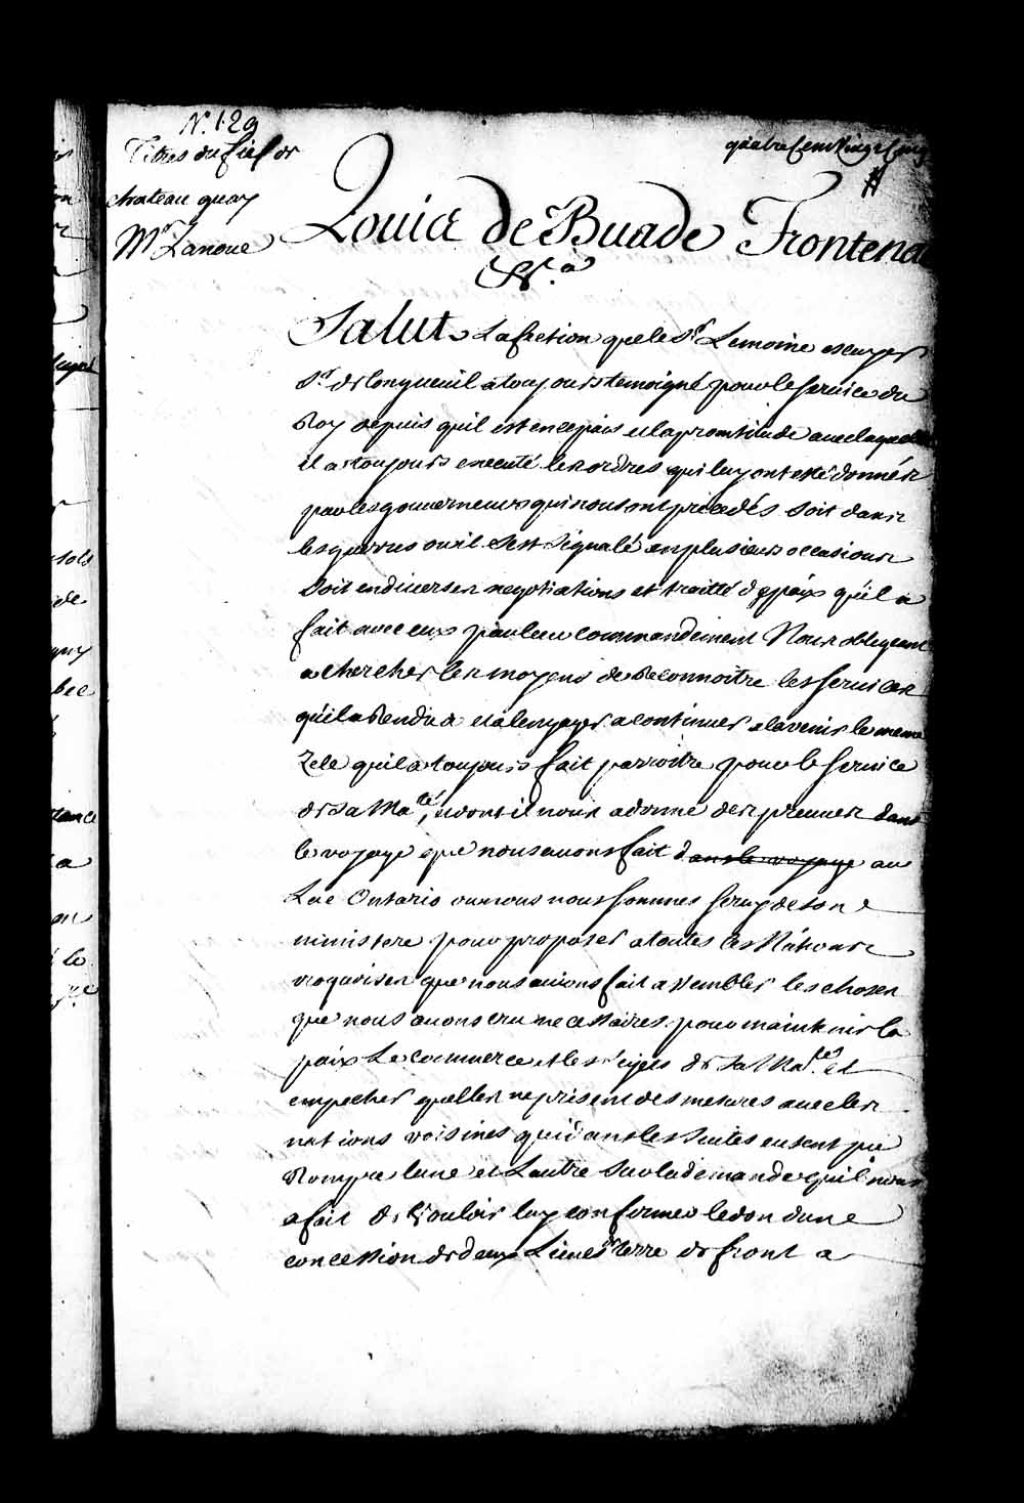 N.° 129
Titres du fief de
chateau guay
Mr Lanoue
quatre cent Vingt Cinq
Louis de Buade Frontenac
&.a
Salut Lafection que le Sr Lemoine escuyer
Sr de longueuil a toujours temoigné pour le service du
Roy depuis quil est en ce païs et la promtitude avec laquelle
il a toujours executé les ordres qui luy ont esté donnés
par les gouverneurs qui nous ont precedés soit dans
les guerres ou il sest signalé en plusieurs occasions
soit en diverses negotiations et traitté de paix qu'il a
fait avec eux par leur commandement Nous obligeant
a chercher les moyens de Reconnoître les services
quil a Rendus et a lengager a continuer a lavenir le meme
Zele quil a toujours fait parroitre pour le service
de sa Mate, dont il nous a donné des preuves dans
le voyage que nous avons fait dans le voyage au
Lac Ontario ou nous nous sommes servy de son
ministere pour proposer a toutes les Nations
iroquoises que nous avions fait assembler les choses
que nous avons cru necessaires pour maintenir la
paix Le commerce et les sujets de sa Mate. et
empecher quelles ne prissent des mesures avec les
nations voisines qui dans les suites eusent pu
Rompre lune et Lautre sur la demande quil nous
a fait de Vouloir luy confirmer le don dune
concession de deux Lieues de terre de front a